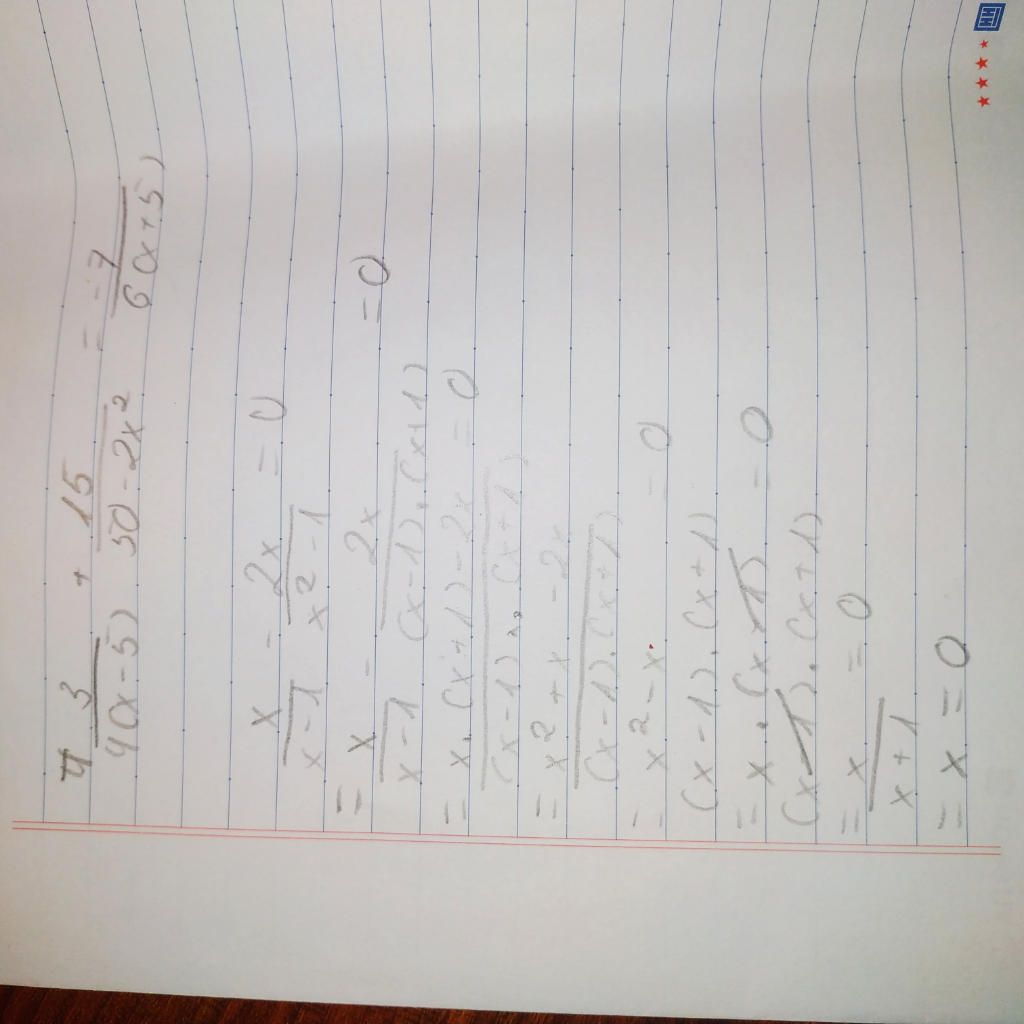 4 3/4(x-5) + 15/50-2x² = -7/6(x+5)
x/x-1 - 2x/x²-1 = 0
= x/x-1 - 2x/(x-1).(x+1) = 0
= x.(x+1)-2x/(x-1).(x+1) = 0
= x²+x-2x/(x-1).(x+1)
= x²-x/(x-1).(x+1) = 0
= x.(x-1)/(x-1).(x+1) = 0
= x/x+1 = 0
= x = 0